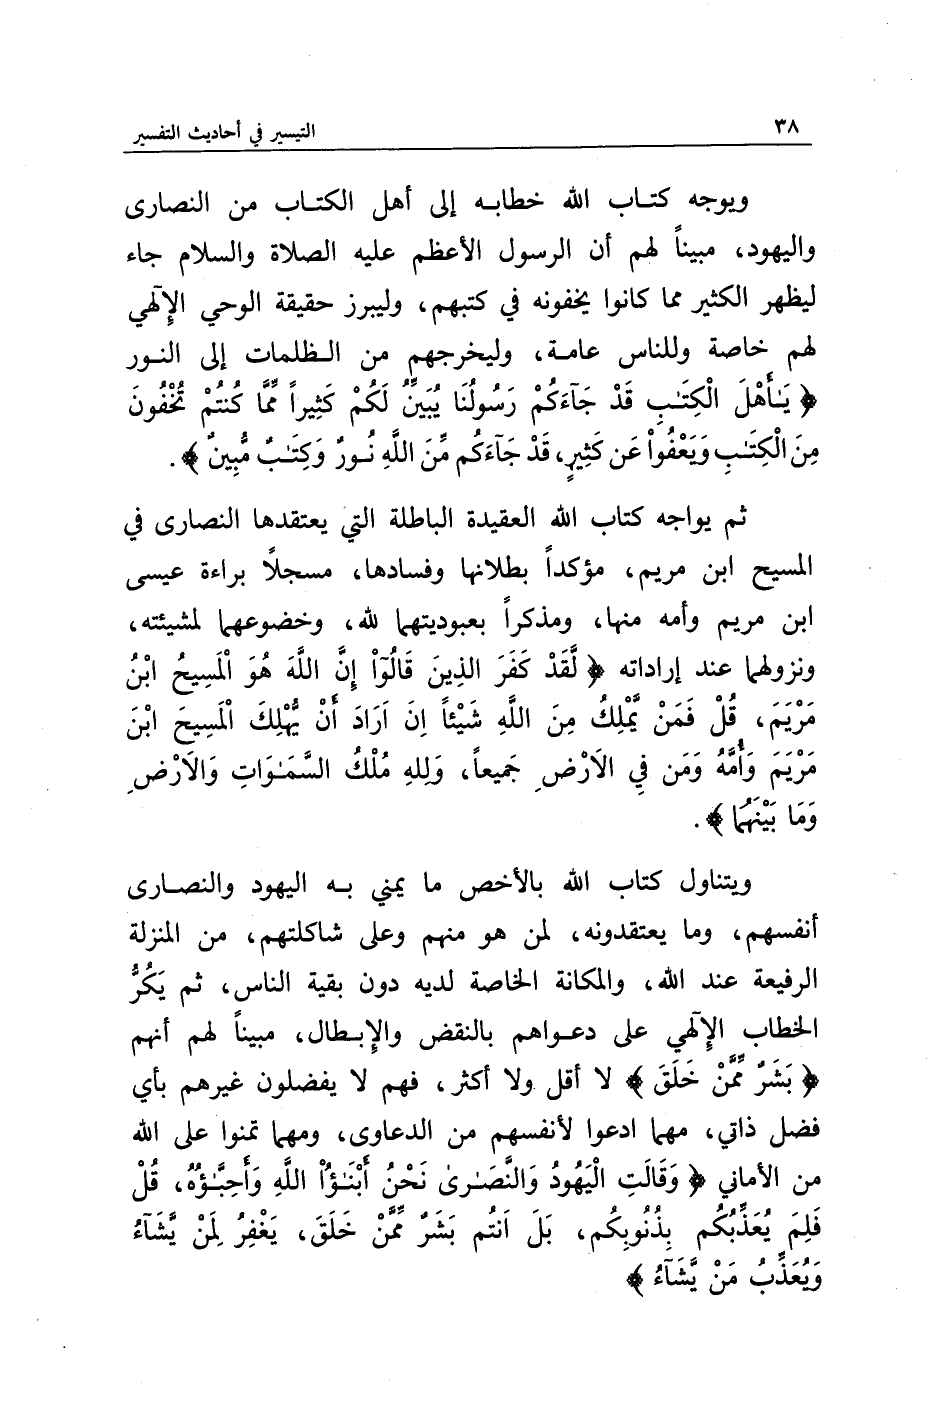 ٣٨ التيسير في أحاديث التفسير
ويوجه كتاب الله خطابه إلى أهل الكتاب من النصارى
واليهود، مبيناً لهم أن الرسول الأعظم عليه الصلاة والسلام جاء
ليظهر الكثير مما كانوا يخفونه في كتبهم، وليبرز حقيقة الوحي الإلٓهي
لهم خاصة وللناس عامة، وليخرجهم من الظلمات إلى النور
﴿ يَـٰأَهْلَ الْكِتَـٰبِ قَدْ جَآءَكُمْ رَسُولُنَا يُبَيِّنُ لَكُمْ كَثِيراً مِّمَّا كُنتُمْ تُخْفُونَ
مِنَ الْكِتَـٰبِ وَيَعْفُواْ عَن كَثِيرٍ، قَدْ جَآءَكُم مِّنَ اللَّهِ نُورٌ وَكِتَـٰبٌ مُّبِينٌ ﴾.
ثم يواجه كتاب الله العقيدة الباطلة التي يعتقدها النصارى في
المسيح ابن مريم، مؤكداً بطلانها وفسادها، مسجلًا براءة عيسى
ابن مريم وأمه منها، ومذكراً بعبوديتهما لله، وخضوعهما لمشيئته،
ونزولهما عند إراداته ﴿ لَّقَدْ كَفَرَ الذِينَ قَالُوٓاْ إِنَّ اللَّهَ هُوَ اَلْمَسِيحُ ابْنُ
مَرْيَمَ، قُلْ فَمَنْ يَّمْلِكُ مِنَ اللَّهِ شَيْئاً اِنَ اَرَادَ أَنْ يُّهْلِكَ اَلْمَسِيحَ ابْنَ
مَرْيَمَ وَأُمَّهُ وَمَن فِي الَارْضِ جَمِيعاً، وَلِلهِ مُلْكُ السَّمَـٰوَاتِ وَالَارْضِ
وَمَا بَيْنَهُمَا ﴾.
ويتناول كتاب الله بالأخص ما يمني به اليهود والنصارى
أنفسهم، وما يعتقدونه، لمن هو منهم وعلى شاكلتهم، من المنزلة
الرفيعة عند الله، والمكانة الخاصة لديه دون بقية الناس، ثم يَكُرُّ
الخطاب الإلٓهي على دعواهم بالنقض والإبطال، مبيناً لهم أنهم
﴿ بَشَرٌ مِّمَّنْ خَلَقَ ﴾ لا أقل ولا أكثر، فهم لا يفضلون غيرهم بأي
فضل ذاتي، مهما ادعوا لأنفسهم من الدعاوى، ومهما تمنوا على الله
من الأماني ﴿ وَقَالَتِ الْيَهُودُ وَالنَّصَـٰرىٰ نَحْنُ أَبْنَـٰؤُاْ اللَّهِ وَأَحِبَّـٰؤُهُ، قُلْ
فَلِمَ يُعَذِّبُكُم بِذُنُوبِكُم، بَلَ اَنتُم بَشَرٌ مِّمَّنْ خَلَقَ، يَغْفِرُ لِمَنْ يَّشَآءُ
وَيُعَذِّبُ مَنْ يَّشَآءُ ﴾